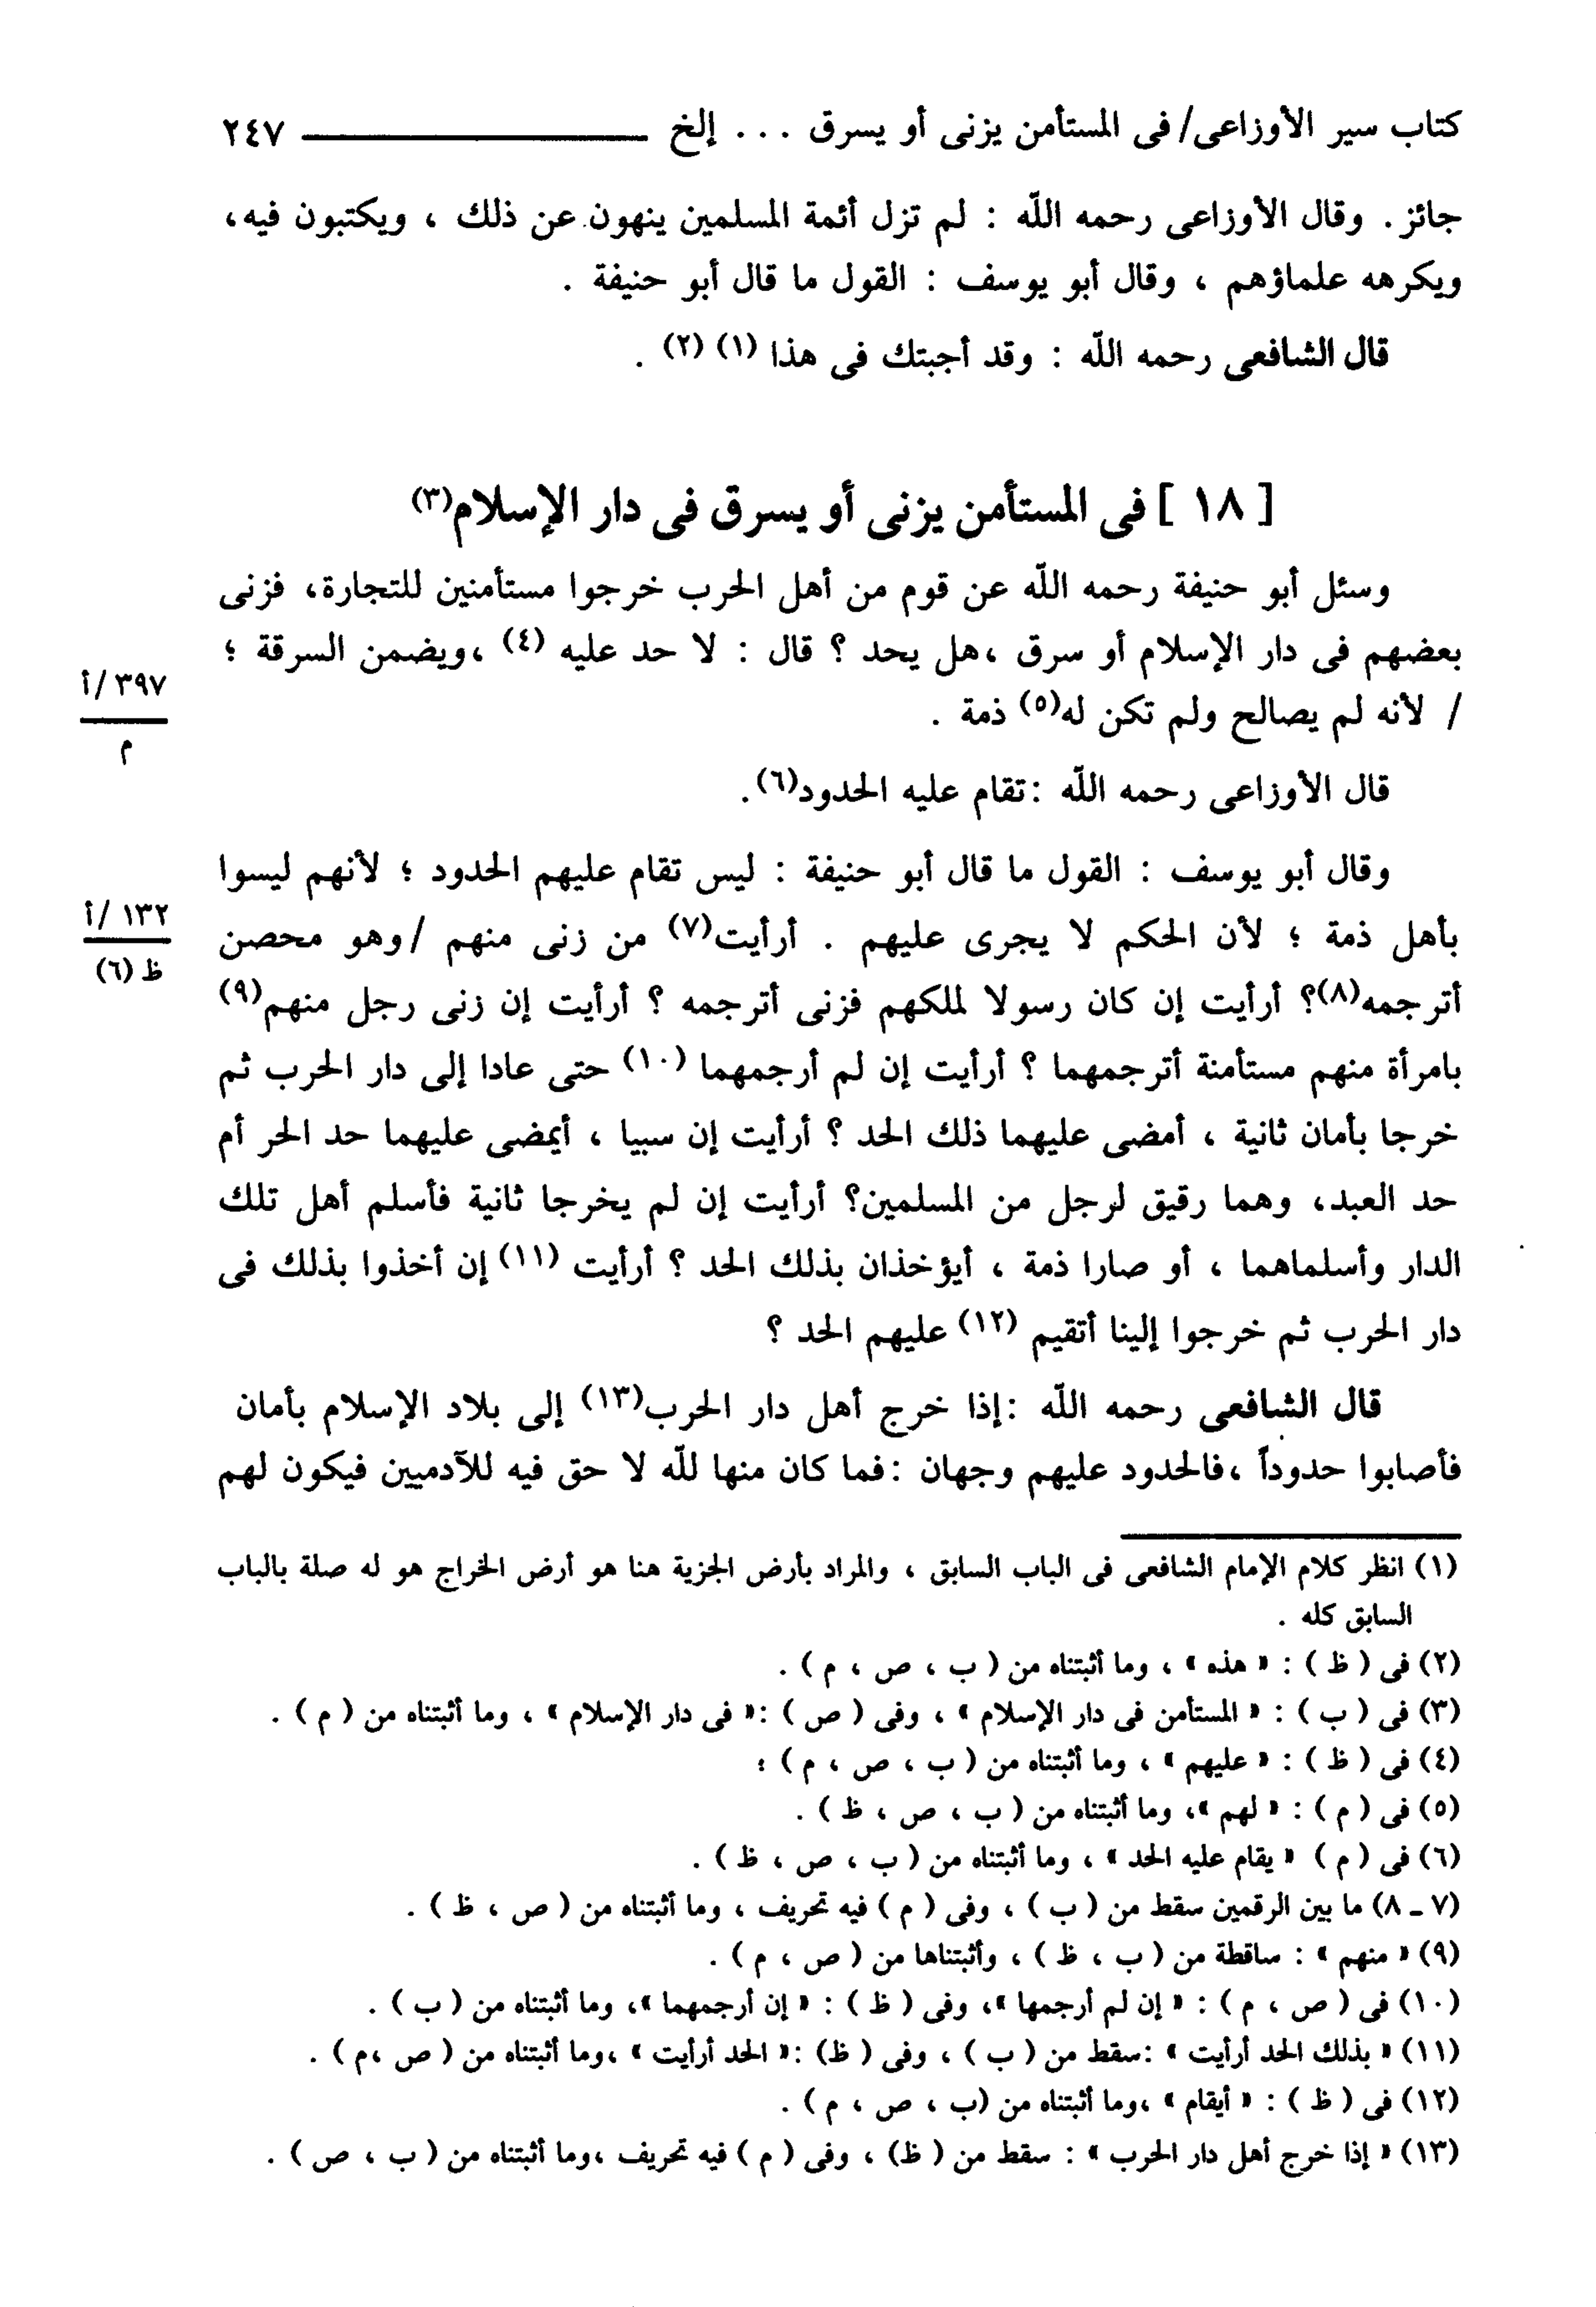 كتاب سير الأوزاعى/ فى المستأمن يزنى أو يسرق . . . إلخ ٢٤٧
جائز . وقال الأوزاعى رحمه اللّه : لم تزل أئمة المسلمين ينهون عن ذلك ، ويكتبون فيه،
ويكرهه علماؤهم ، وقال أبو يوسف : القول ما قال أبو حنيفة .
قال الشافعى رحمه اللّه : وقد أجبتك فى هذا (١) (٢) .
[ ١٨ ] فى المستأمن يزنى أو يسرق فى دار الإسلام(٣)
وسئل أبو حنيفة رحمه اللّه عن قوم من أهل الحرب خرجوا مستأمنين للتجارة، فزنى
بعضهم فى دار الإسلام أو سرق ،هل يحد ؟ قال : لا حد عليه (٤) ،ويضمن السرقة ؛
٣٩٧ /أ
م
/ لأنه لم يصالح ولم تكن له(٥) ذمة .
قال الأوزاعى رحمه اللّه :تقام عليه الحدود(٦).
وقال أبو يوسف : القول ما قال أبو حنيفة : ليس تقام عليهم الحدود ؛ لأنهم ليسوا
١٣٢ /أ
ظ (٦)
بأهل ذمة ؛ لأن الحكم لا يجرى عليهم . أرأيت(٧) من زنى منهم /وهو محصن
أترجمه(٨)؟ أرأيت إن كان رسولا لملكهم فزنى أترجمه ؟ أرأيت إن زنى رجل منهم(٩)
بامرأة منهم مستأمنة أترجمهما ؟ أرأيت إن لم أرجمهما (١٠) حتى عادا إلى دار الحرب ثم
خرجا بأمان ثانية ، أمضى عليهما ذلك الحد ؟ أرأيت إن سبيا ، أيمضى عليهما حد الحر أم
حد العبد، وهما رقيق لرجل من المسلمين؟ أرأيت إن لم يخرجا ثانية فأسلم أهل تلك
الدار وأسلماهما ، أو صارا ذمة ، أيؤخذان بذلك الحد ؟ أرأيت (١١) إن أخذوا بذلك فى
دار الحرب ثم خرجوا إلينا أتقيم (١٢) عليهم الحد ؟
قال الشافعى رحمه اللّه :إذا خرج أهل دار الحرب(١٣) إلى بلاد الإسلام بأمان
فأصابوا حدوداً ،فالحدود عليهم وجهان :فما كان منها للّه لا حق فيه للآدميين فيكون لهم
(١) انظر كلام الإمام الشافعى فى الباب السابق ، والمراد بأرض الجزية هنا هو أرض الخراج هو له صلة بالباب
السابق كله .
(٢) فى ( ظ ) : « هذه » ، وما أثبتناه من ( ب ، ص ، م ) .
(٣) فى ( ب ) : « المستأمن فى دار الإسلام » ، وفى ( ص ) :« فى دار الإسلام » ، وما أثبتناه من ( م ) .
(٤) فى ( ظ ) : « عليهم » ، وما أثبتناه من ( ب ، ص ، م ) ؛
(٥) فى ( م ) : « لهم »، وما أثبتناه من ( ب ، ص ، ظ ) .
(٦) فى ( م ) « يقام عليه الحد » ، وما أثبتناه من ( ب ، ص ، ظ ) .
(٧ ـ ٨) ما بين الرقمين سقط من ( ب ) ، وفى ( م ) فيه تحريف ، وما أثبتناه من ( ص ، ظ ) .
(٩) « منهم » : ساقطة من ( ب ، ظ ) ، وأثبتناها من ( ص ، م ) .
(١٠) فى ( ص ، م ) : « إن لم أرجمها »، وفى ( ظ ) : « إن أرجمهما »، وما أثبتناه من ( ب ) .
(١١) « بذلك الحد أرأيت » :سقط من ( ب ) ، وفى ( ظ) :« الحد أرأيت » ،وما أثبتناه من ( ص ،م ) .
(١٢) فى ( ظ ) : « أيقام » ،وما أثبتناه من (ب ، ص ، م ) .
(١٣) « إذا خرج أهل دار الحرب » : سقط من ( ظ) ، وفى ( م ) فيه تحريف ،وما أثبتناه من ( ب ، ص ) .